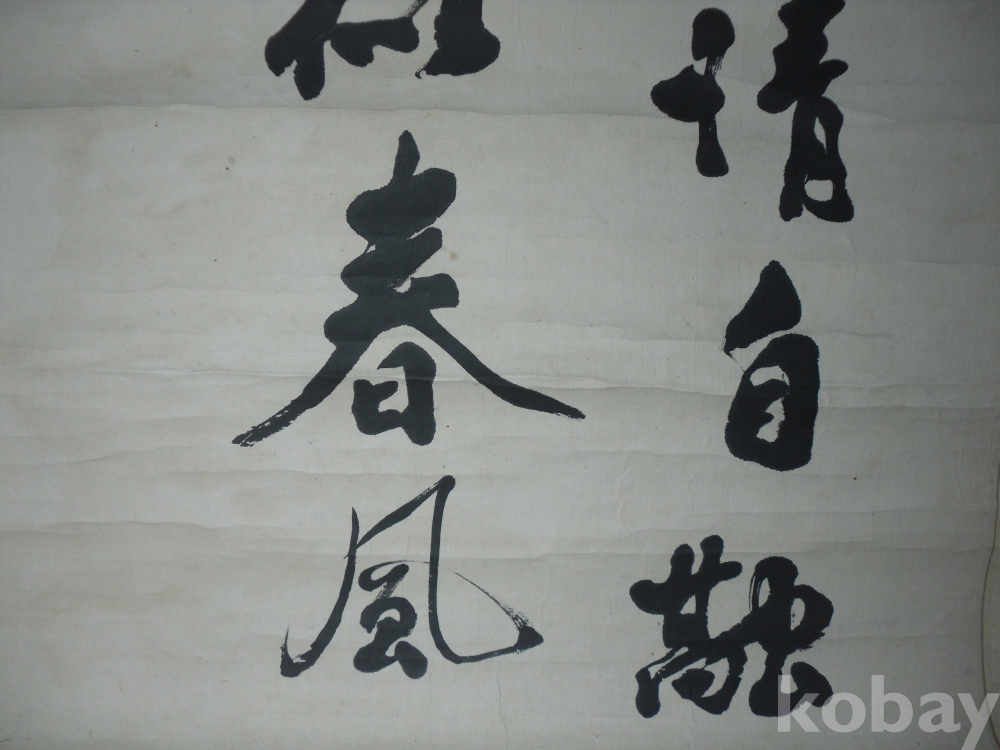 情自融
似春風
kobay